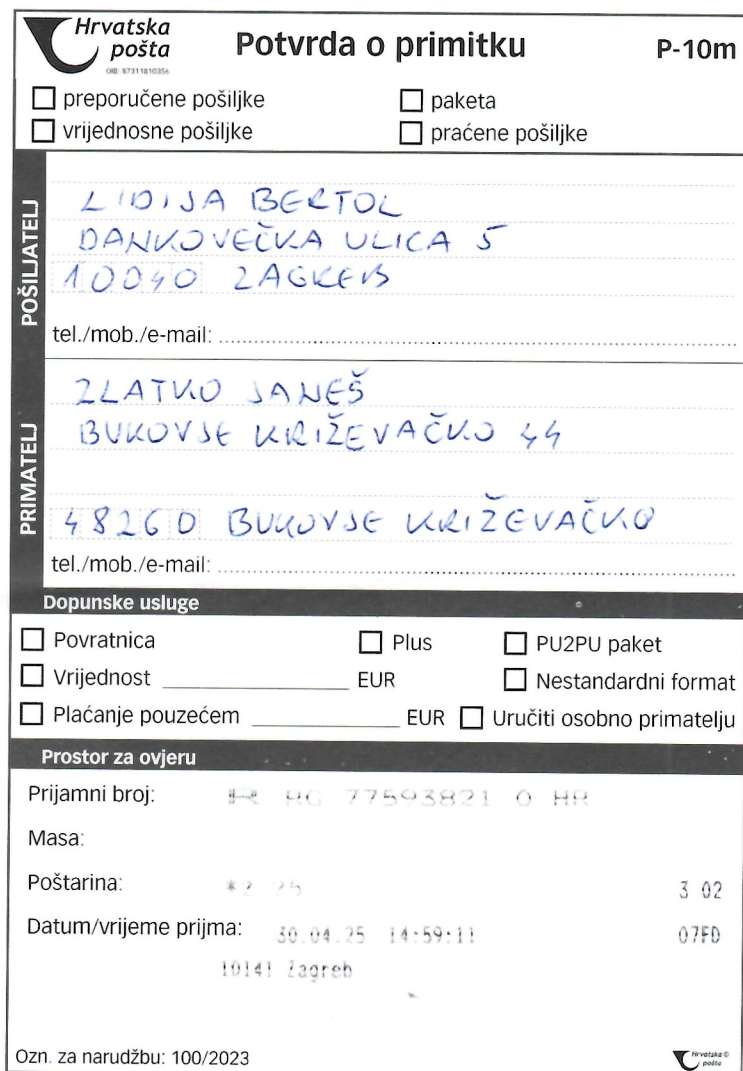 Hrvatska
pošta
OIB: 87311810356
Potvrda o primitku
P-10m
preporučene pošiljke
paketa
vrijednosne pošiljke
praćene pošiljke
POŠILJATELJ
LIDIJA BERTOL
DANKOVEČKA ULICA 5
10040 ZAGREB
tel./mob./e-mail:
PRIMATELJ
ZLATKO JANEŠ
BUKOVJE KRIŽEVAČKO 44
48260 BUKOVJE KRIŽEVAČKO
tel./mob./e-mail:
Dopunske usluge
Povratnica
Plus
PU2PU paket
Vrijednost EUR
Nestandardni format
Plaćanje pouzećem EUR
Uručiti osobno primatelju
Prostor za ovjeru
Prijamni broj: R RG 77593821 0 HR
Masa:
Poštarina: *2 25 3 02
Datum/vrijeme prijma: 30.04.25 14:59:11 07FD
10141 Zagreb
Ozn. za narudžbu: 100/2023
Hrvatska
pošta